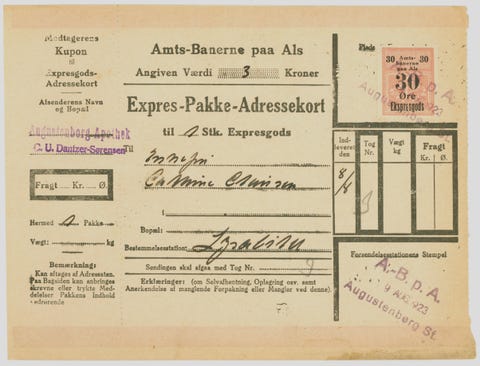 Modtagerens
Kupon
til
Expresgods-
Adressekort
Afsenderens Navn
og Bopæl
Augustenborg Apothek
C. U. Dantzer-Sørensen
Fragt Kr. Ø.
Hermed 1 Pakke
Vægt: kg
Bemærkning:
Kan aftages af Adressaten.
Paa Bagsiden kan anbringes
skrevne eller trykte Med-
delelser Pakkens Indhold
vedrørende
Amts-Banerne paa Als
Angiven Værdi 3 Kroner
Expres-Pakke-Adressekort
til 1 Stk. Expresgods
Til
i
Bopæl:
Bestemmelsesstation:
Sendingen skal afgaa med Tog Nr. 9
Erklæringer: (om Selvafhentning, Oplagring osv. samt
Anerkendelse af manglende Forpakning eller Mangler ved denne).
Plads
30 Amts- 30
Banerne
paa Als
30
Øre
Ekspresgods
A.-B. p. A.
Augustenborg St.
Ind-
leveret
den
Tog
Nr.
Vægt
kg
Fragt
Kr. Ø.
8/8
9
Forsendelsesstationens Stempel
A.-B. p. A.
9 AUG. 1923
Augustenborg St.